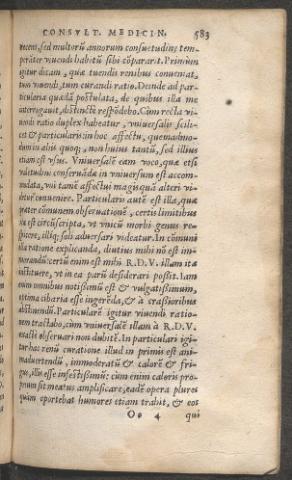 CONSVLT. MEDICIN. 583
recens, sed multorũ annorum consuetudine tem-
peráter viuendi habitũ sibi cõparârit. Primùm
igitur dicam, quæ tuendis renibus conueniat,
tum viuendi, tum curandi ratio. Deinde ad par-
ticularia quædã postulata, de quibus illa me
interrogauit, distinctè respõdebo. Cùm recta vi-
uendi ratio duplex habeatur, vniuersalis scili-
cet & particularis: in hoc affectu, quemadmo-
dum in aliis quoq; non huius tantũ, sed illius
etiam est vsus. Vniuersalẽ eam voco, quæ etsi
valetudini conseruãdæ in vniuersum est accom-
modata, vni tamẽ affectui magis quã alteri vi-
detur conuenire. Particularis autẽ est illa, quæ
præter cõmunem obseruationẽ, certis limitibus
ita est circũscripta, vt vnicũ morbi genus re-
spicere, illiq; soli aduersari videatur. In cõmuni
illa ratione explicanda, diutius mihi nõ est im-
morandũ: certũ enim est mihi R.D.V. illam ita
instituere, vt in ea parũ desiderari possit. Iam
enim omnibus notissimũ est & vulgatissimum,
optima cibaria esse ingerẽda, & à crassioribus
abstinendũ. Particularẽ igitur viuendi ratio-
nem tractabo, cùm vniuersalẽ illam à R.D.V.
exactè obseruari non dubitẽ. In particulari igi-
tur hac renũ curatione illud in primis est ani-
maduertendũ, immoderatũ & calorẽ & fri-
gus, illis esse infestissimũ: cùm enim caloris pro-
prium sit meatus amplificare, eadẽ opera plures
quàm oportebat humores etiam trahit, & eos
Oo 4 qui